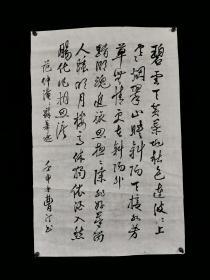 碧雲天黄葉地秋色連波々上
寒烟翠山映斜陽天接水芳
草無情更在斜陽外
黯鄉魂追旅思夜々除非好夢留
人睡明月樓高休獨倚酒入愁
腸化作相思淚
范仲淹蘇幕遮 壬申年曹汀书